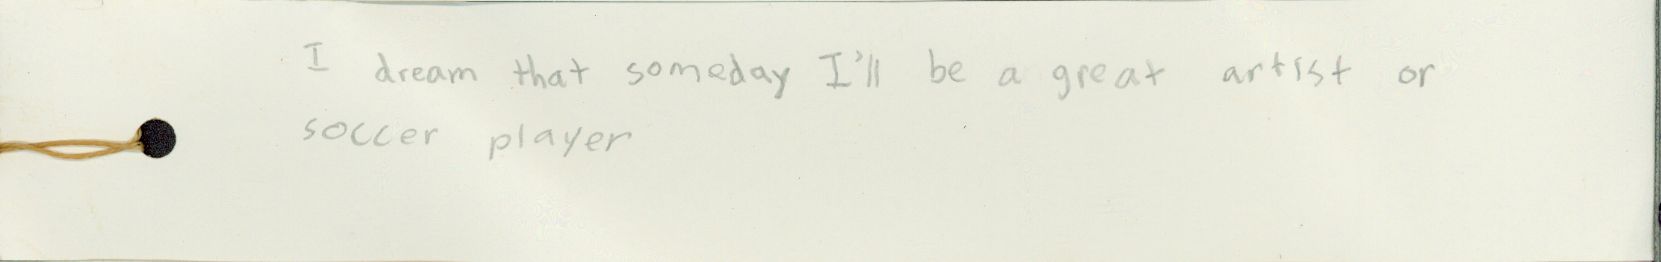 I dream that someday I'll be a great artist or
soccer player